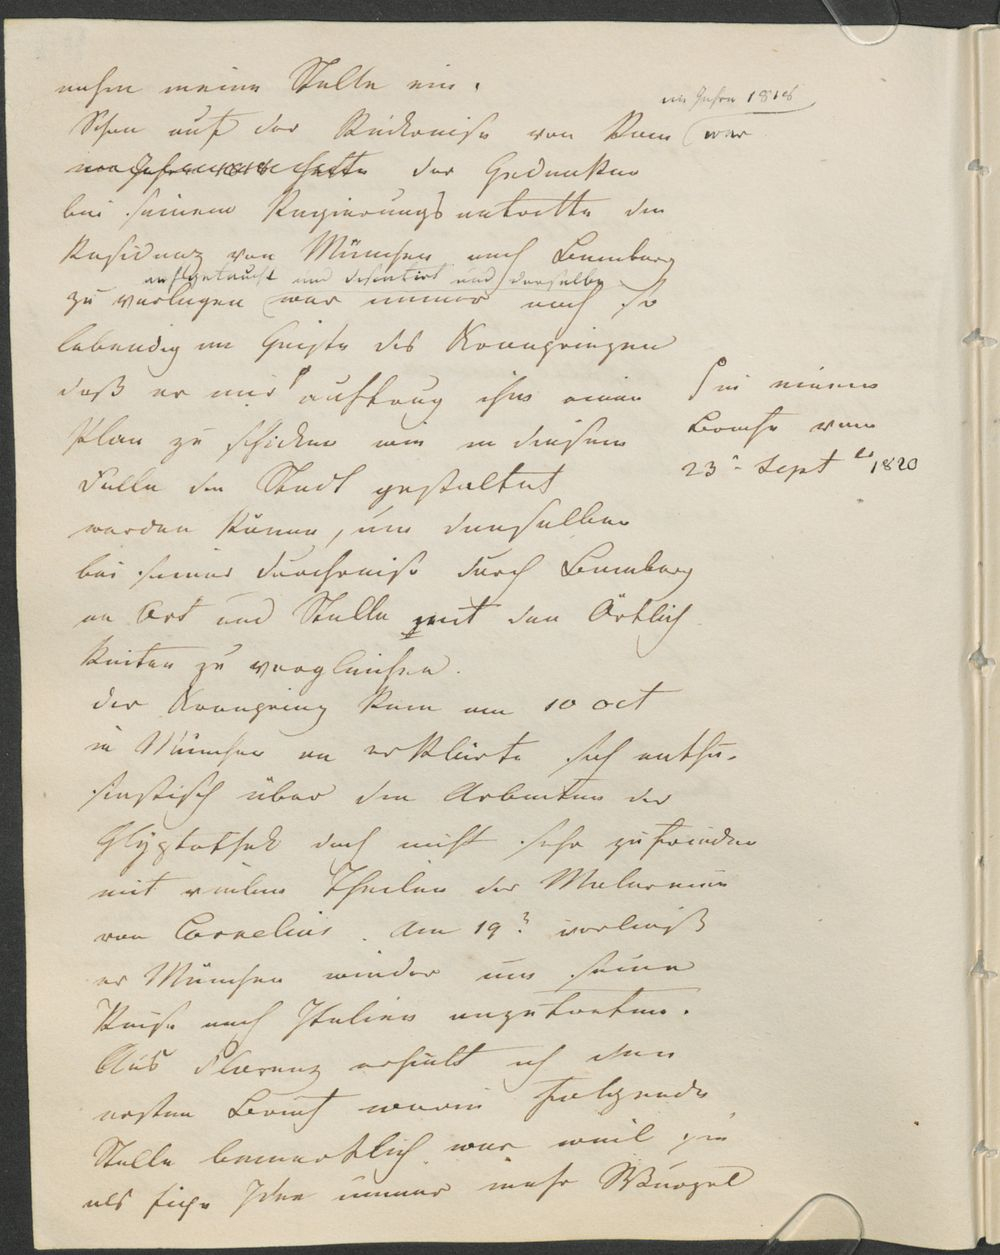 nahm meine Stelle ein.
im Jahre 1818
Schon auf der Rückreise von Rom war
im Jahre 1818 hatte der Gedanke
bei seinem Regierungsantritte die
Residenz von München nach Bamberg
aufgetaucht und discutirt und derselbe
zu verlegen war immer noch so
lebendig im Geiste des Kronprinzen
daß er mir auftrug ihm einen
in einem
Plan zu schicken wie in diesem
Briefe vom
Falle die Stadt gestaltet
23n Sept 1820
werden könne, um denselben
bei seiner Durchreise durch Bamberg
an Ort und Stelle mit den Örtlich
keiten zu vergleichen.
Der Kronprinz kam am 10 Oct
in München an erklärte sich enthu-
siastisch über die Arbeiten der
Glyptothek doch nicht sehr zufrieden
mit vielen Theilen der Malereien
von Cornelius. Am 19? verließ
er München wieder um seine
Reise nach Italien anzutreten.
Aus Florenz erhielt ich den
ersten Brief worin folgende
Stelle bemerklich war weil sie
als fixe Idee immer mehr Wurzel